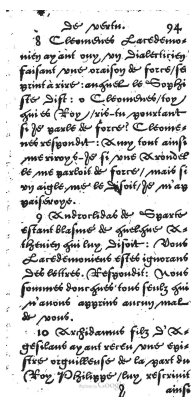 De vertu. 94
8 Cleomenes Lacedemo-
nien ayant ouy vn Dialecticien
faisant vne oraison de force/se
print à rire: auquel le Sophi
ste Dist: o Cleomenes/toy/
qui es Roy/ris-tu pourtant
si Je parle de force? Cleome-
nes respondit: Amy tout ainsi
me riroy-Je si vne Arondel
le me parloit de force/mais si
vn aigle me le disoit/Je m'ap
paiseroye.
9 Androclidas de Sparte
estant blasmé de quelque A-
thenien qui luy Disoit: Vous
Lacedemoniens estes ignorans
Des lettres. Respondit: Nous
sommes doncques tous seulz qui
n'auons apprins aucun mal
de vous.
10 Archidamus filz d'A-
gesilaus ayant receu vne epi-
stre orguilleuse de la part du
Roy Philippe/luy rescriuit
ainsi